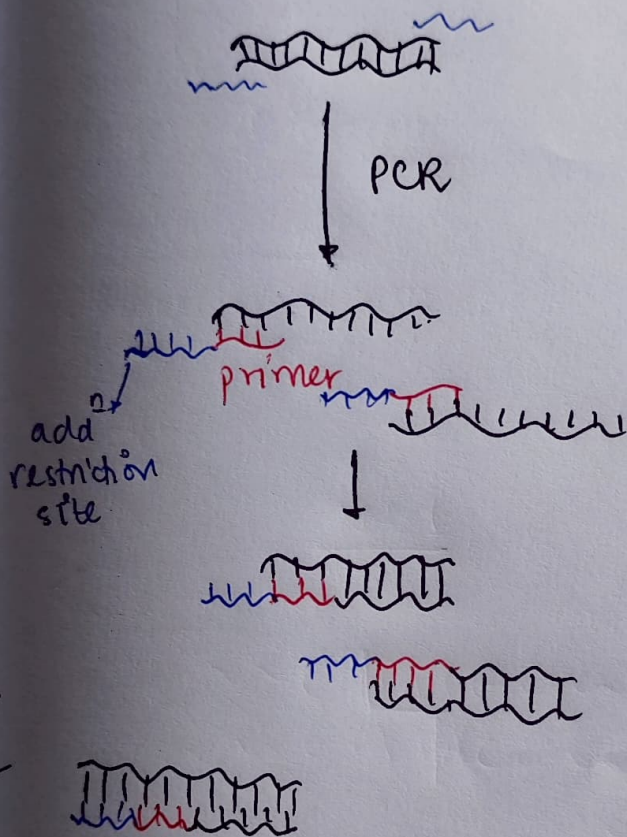 PCR
primer
addⁿ
restriction
site